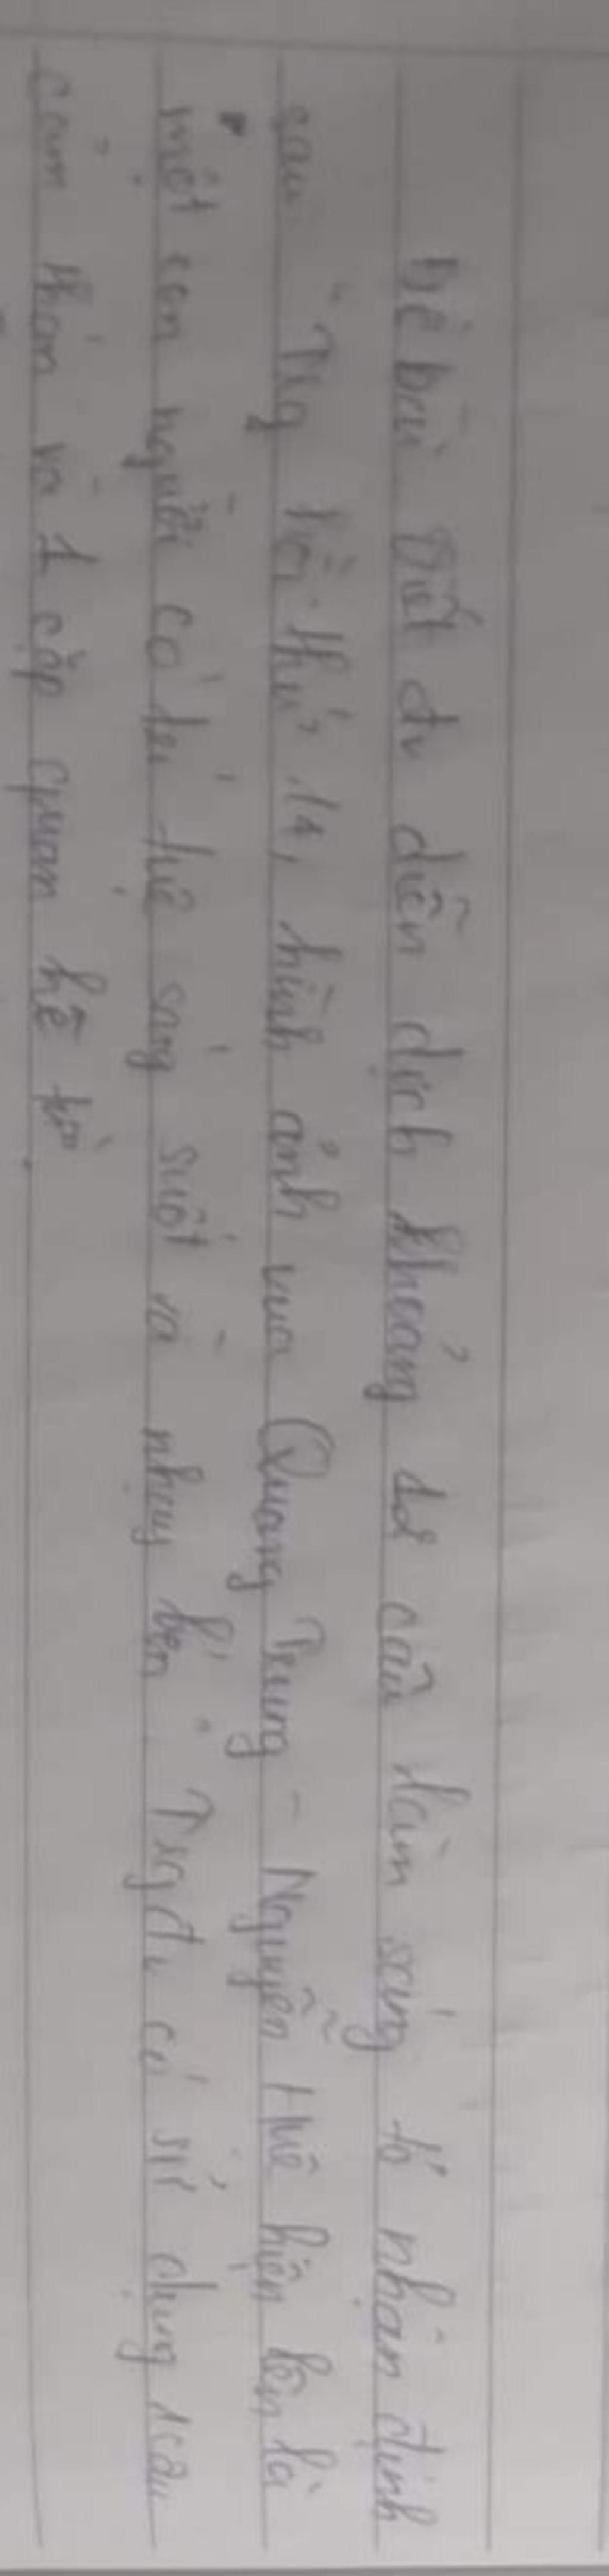 Đề bài. Viết đv diễn dịch khoảng 12 câu làm sáng tỏ nhận định
sau. "Trg hồi thứ 14, hình ảnh vua Quang Trung - Nguyễn Huệ hiện lên là
một con người có trí tuệ sáng suốt và nhạy bén". Trg đv có sử dụng 1 câu
cảm thán và 1 cặp quan hệ từ